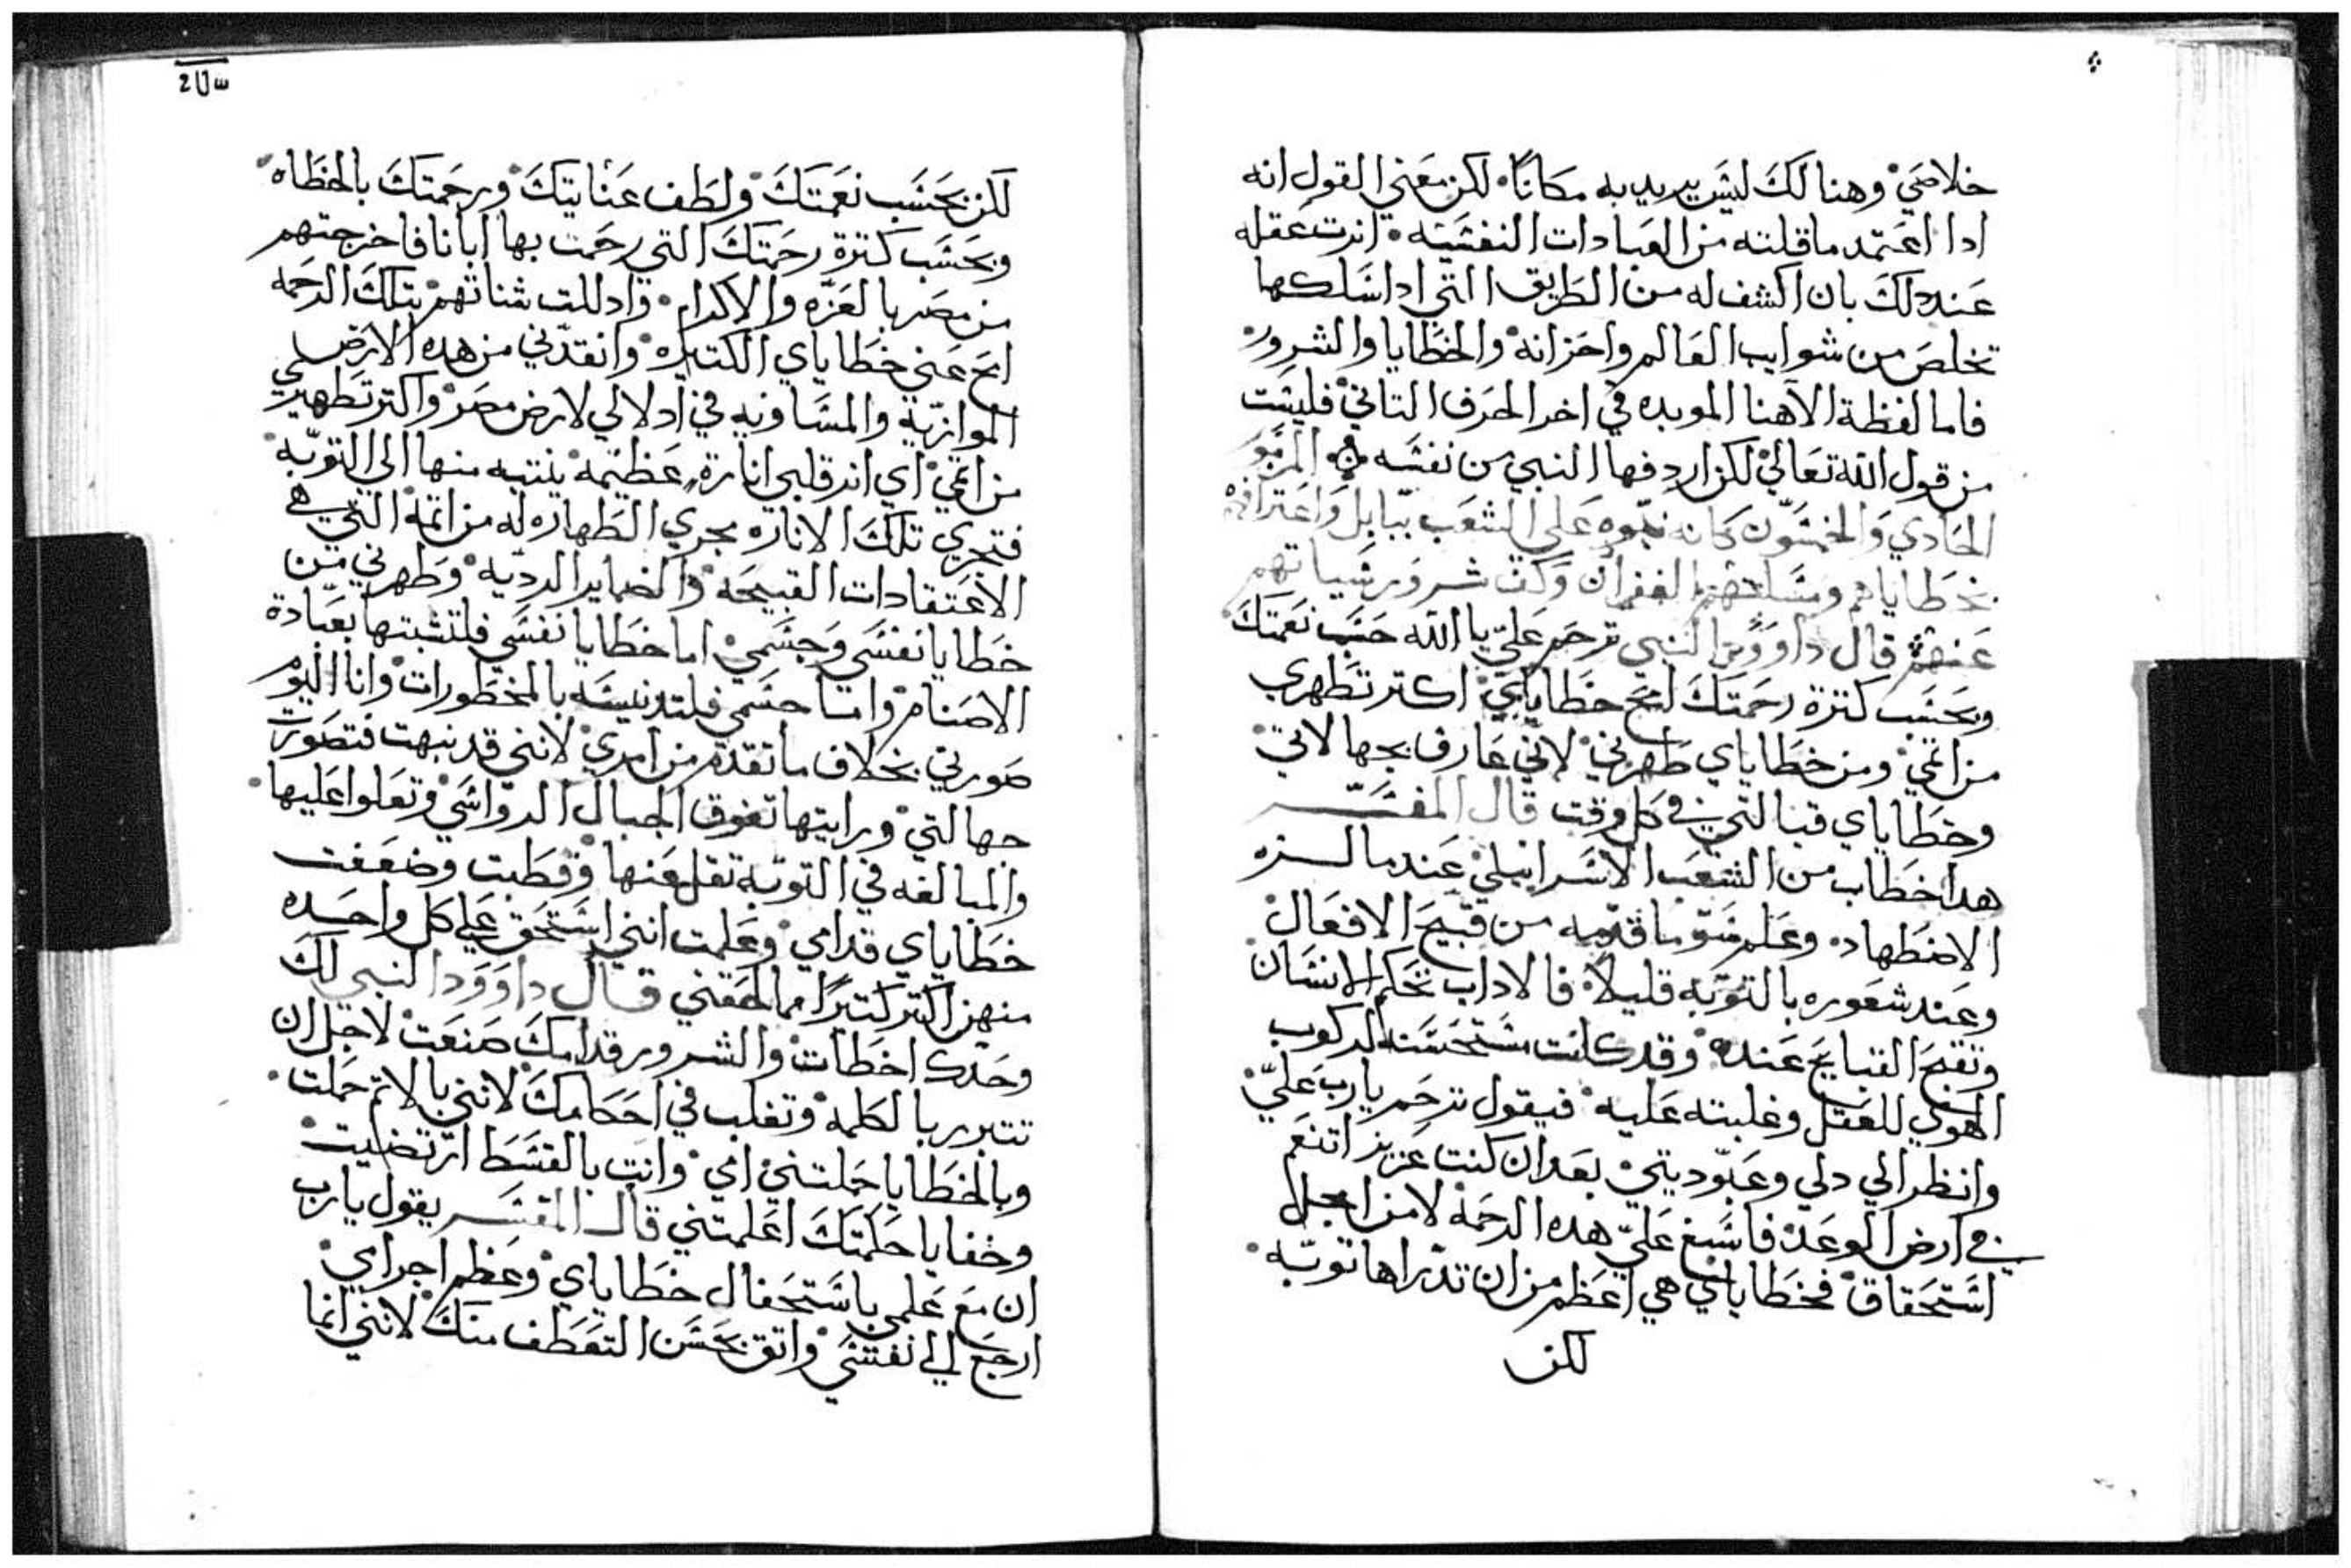 خلاصي وهنالك ليس يريد به مكانًا لكن معني القول انه
ادا اعتمد ما قلته من العبادات النفسيه انرت عقله
عند دلك بان اكشف له من الطريق التي ادا سلكها
تخلص من شوايب العالم واحزانه والخطايا والشرور
فاما لفظة الاهنا الموبده في اخر الحرف التاني فليست
من قول الله تعالي لكن اردفها النبي من نفسه المزمور
الحادي والخمسون كانه نبوه علي الشعب ببابل واعترافهم
بخطاياهم ومسلتهم الغفران وكف شرور سياتهم
عنهم قال داوود النبي ترحم علي يا الله حسب نعمتك
وبحسب كترة رحمتك امح خطاياي اكتر تطهري
من اتمي ومن خطاياي طهرني لاني عارف بجهالاتي
وخطاياي قبالتي في كل وقت قال المفسر
هدا خطاب من الشعب الاسرايلي عندما لسزه
الاضطهاد وعلم سو ما قدمه من قبيح الافعال
وعند شعوره بالتوبه قليلا فالاداب تحكم الانسان
وتقبح القبايح عنده وقد كانت مستحسنه لركوب
الهوي للعقل وغلبته عليه فيقول ترحم يارب علي
وانظر الي دلي وعبوديتي بعد ان كنت عزيز اتنعم
في ارض الوعد فاسبغ علي هده الرحمه لا من اجل
استحقاق فخطاياي هي اعظم من ان تدراها توبه
لكن
س‍ل2
لكن بحسب نعمتك ولطف عنايتك ورحمتك بالخطاه
وبحسب كترة رحمتك التي رحمت بها ابانا فاخرجتهم
من مصر بالعزه والاكرام وادللت شناتهم بتلك الرحمه
امح عني خطاياي الكتيره وانقدني من هده الارض
الموازيه والمساويه في ادلالي لارض مصر واكتر تطهيري
من اتمي اي انر قلبي انارة عظيمه ينتبه منها الي التوبه
فتجري تلك الاناره مجري الطهاره له من اتمه التي هي
الاعتقادات القبيحه والضماير الرديه وطهرني من
خطايا نفسي وجسمي اما خطايا نفسي فلتشبتها بعبادة
الاصنام واما جسمي فلتدنيسه بالمخطورات وانا اليوم
صورتي بخلاف ما تقدم من امري لانني قد نبهت فتصورت
جهالتي ورايتها تفوق الجبال الرواسي وتعلوا عليها
والمبالغه في التوبه تقل عنها وقطبت وضعفت
خطاياي قدامي وعلمت انني استحق علي كل واحده
منهن اكتر كتيرًا مما لحقني قال داوود النبي لك
وحدك اخطات والشرور قدامك صنعت لاجل ان
تتبرر بالكلمه وتغلب في احكامك لانني بالاتم حملت
وبالخطايا حملتني امي وانت بالقسط ارتضيت
وخفايا حكمتك اعلمتني قال المفسر يقول يارب
ان مع علمي باستحفال خطاياي وعظم اجراي
ارجع الي نفسي واتق بحسن التعطف منك لانني انما